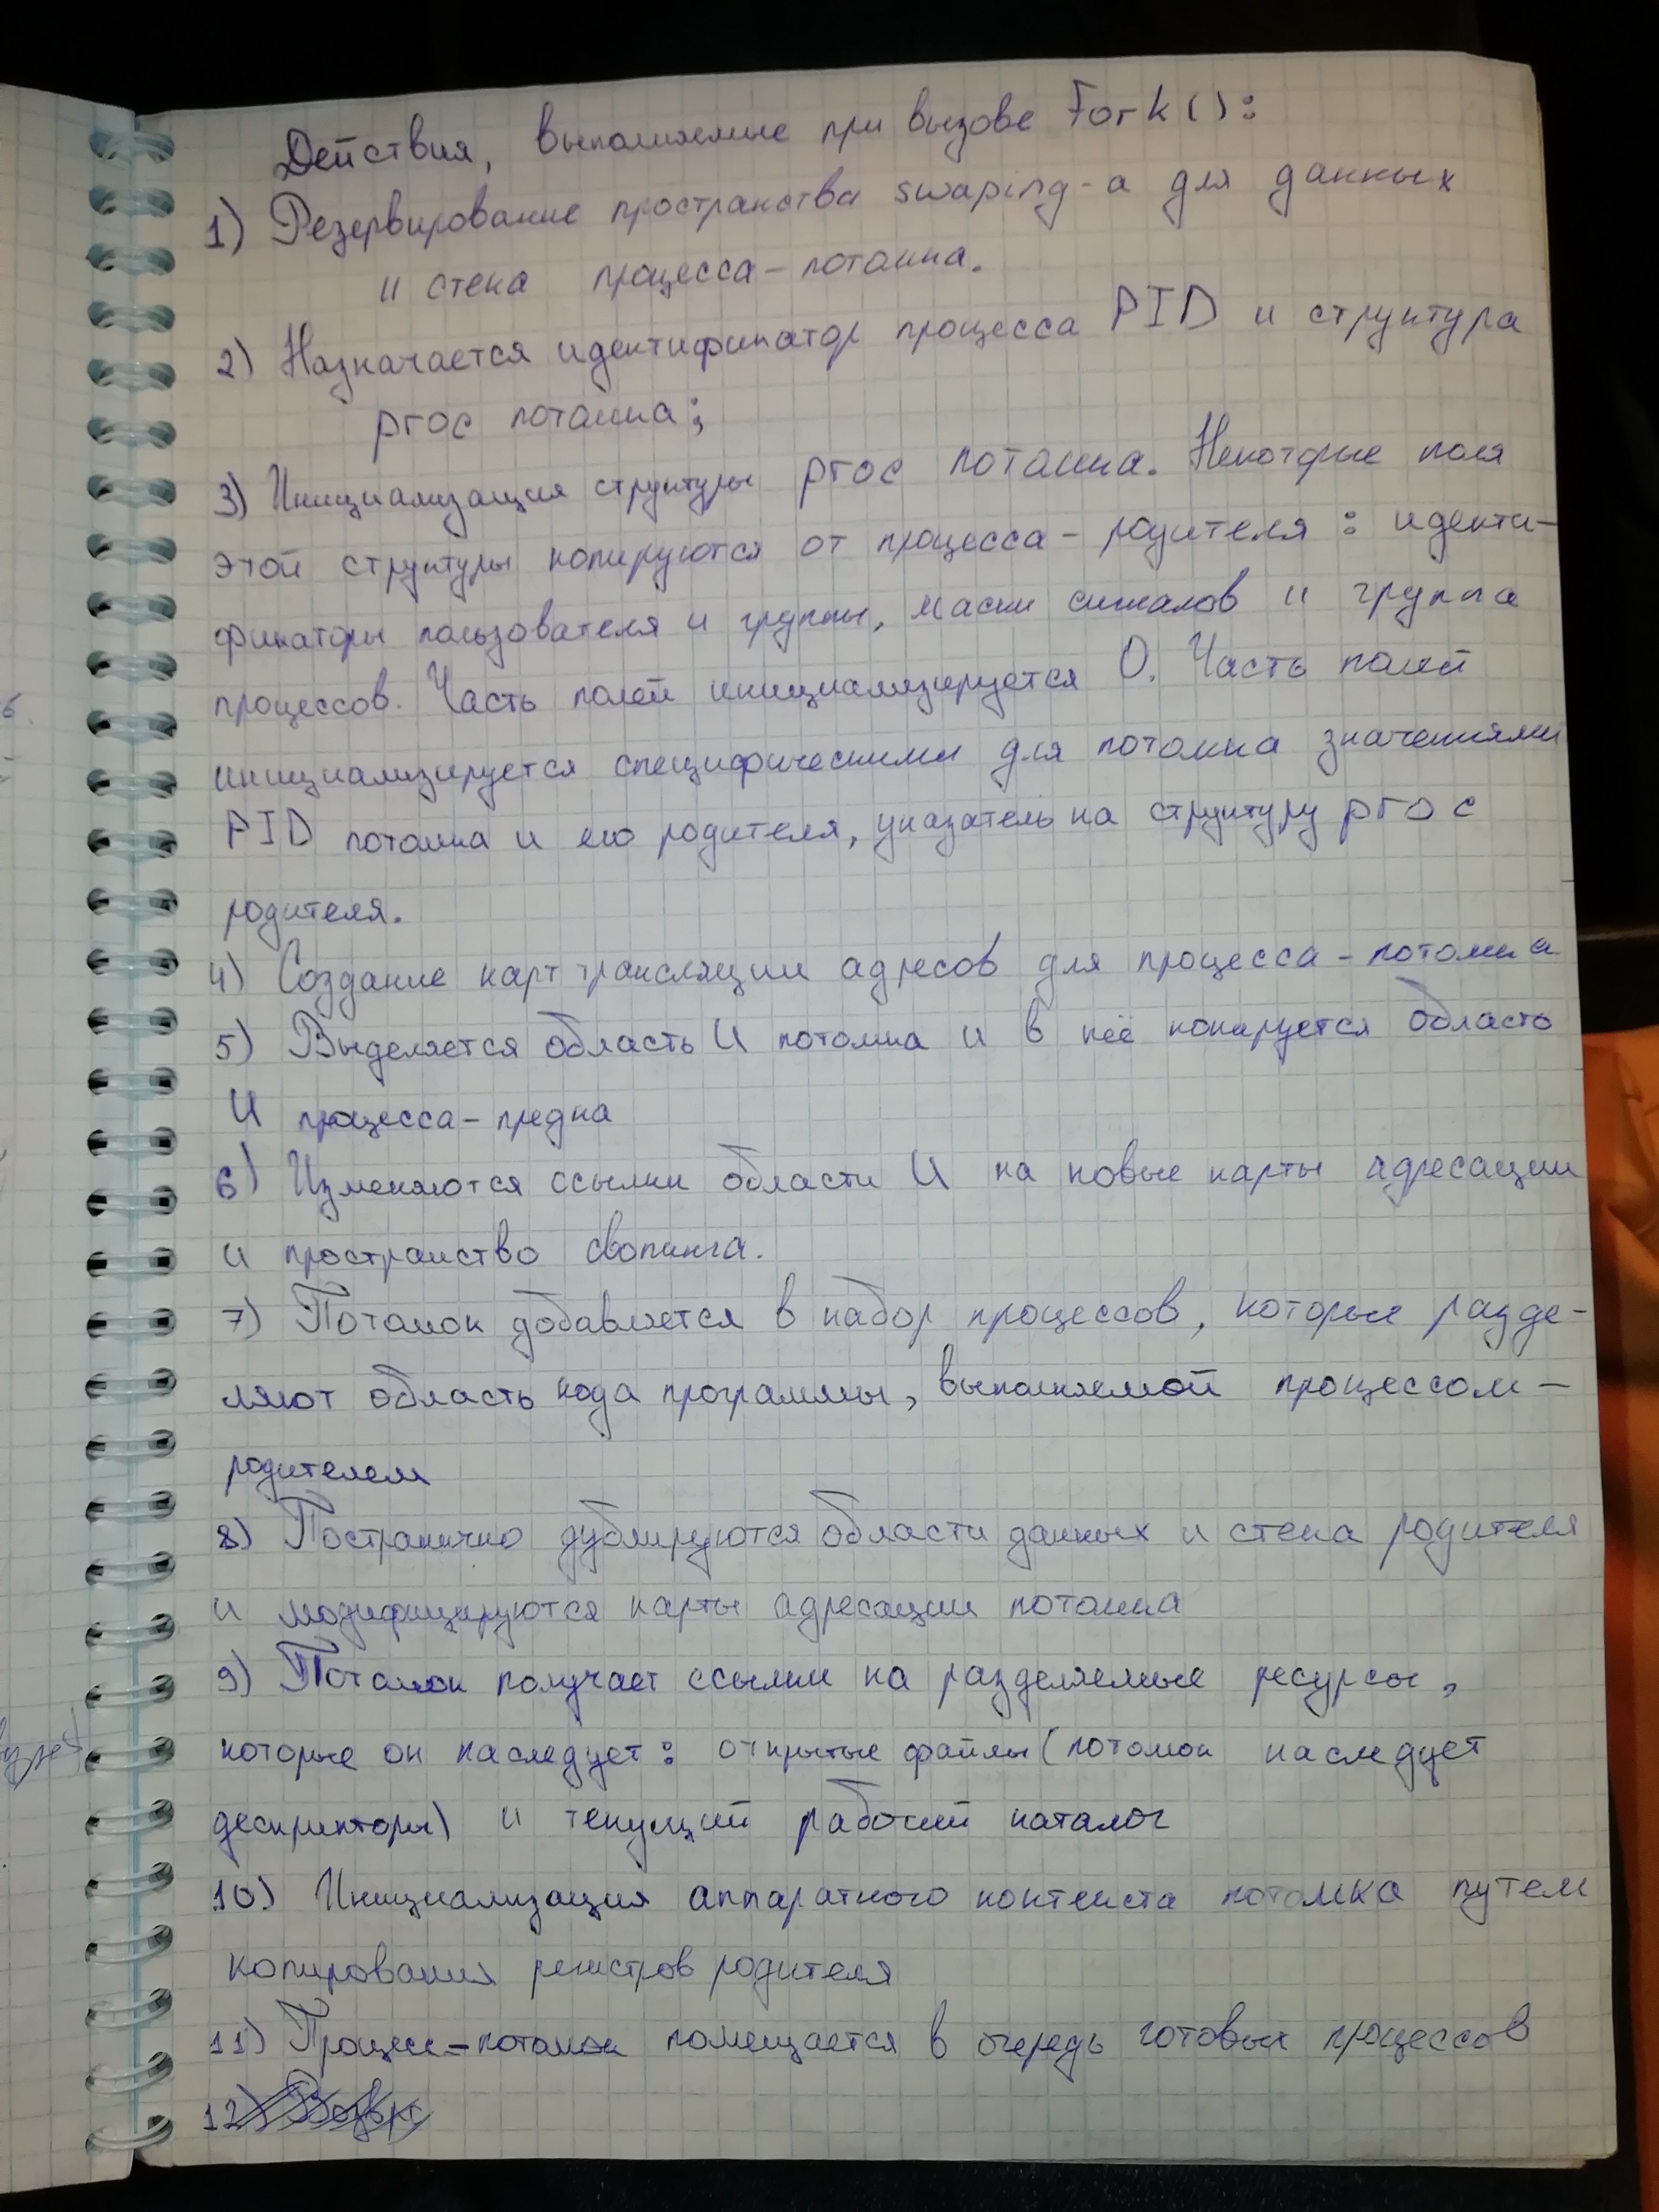 Действия, выполняемые при вызове Fork():
1) Резервирование пространства swaping-а для данных
и стека процесса-потомка.
2) Назначается идентификатор процесса PID и структура
proc потомка;
3) Инициализация структуры proc потомка. Некоторые поля
этой структуры копируются от процесса-родителя: иденти-
фикаторы пользователя и группы, маски сигналов и группа
процессов. Часть полей инициализируется 0. Часть полей
инициализируется специфическими для потомка значениями
PID потомка и его родителя, указатель на структуру proc
родителя.
4) Создание карт трансляции адресов для процесса-потомка
5) Выделяется область U потомка и в неё копируется область
U процесса-предка
6) Изменяются ссылки области U на новые карты адресации
и пространство свопинга.
7) Потомок добавляется в набор процессов, которые разде-
ляют область кода программы, выполняемой процессом-
родителем
8) Постранично дублируются области данных и стека родителя
и модифицируются карты адресации потомка
9) Потомок получает ссылки на разделяемые ресурсы,
которые он наследует: открытые файлы (потомок наследует
дескрипторы) и текущий рабочий каталог
10) Инициализация аппаратного контекста потомка путем
копирования регистров родителя
11) Процесс-потомок помещается в очередь готовых процессов
12)